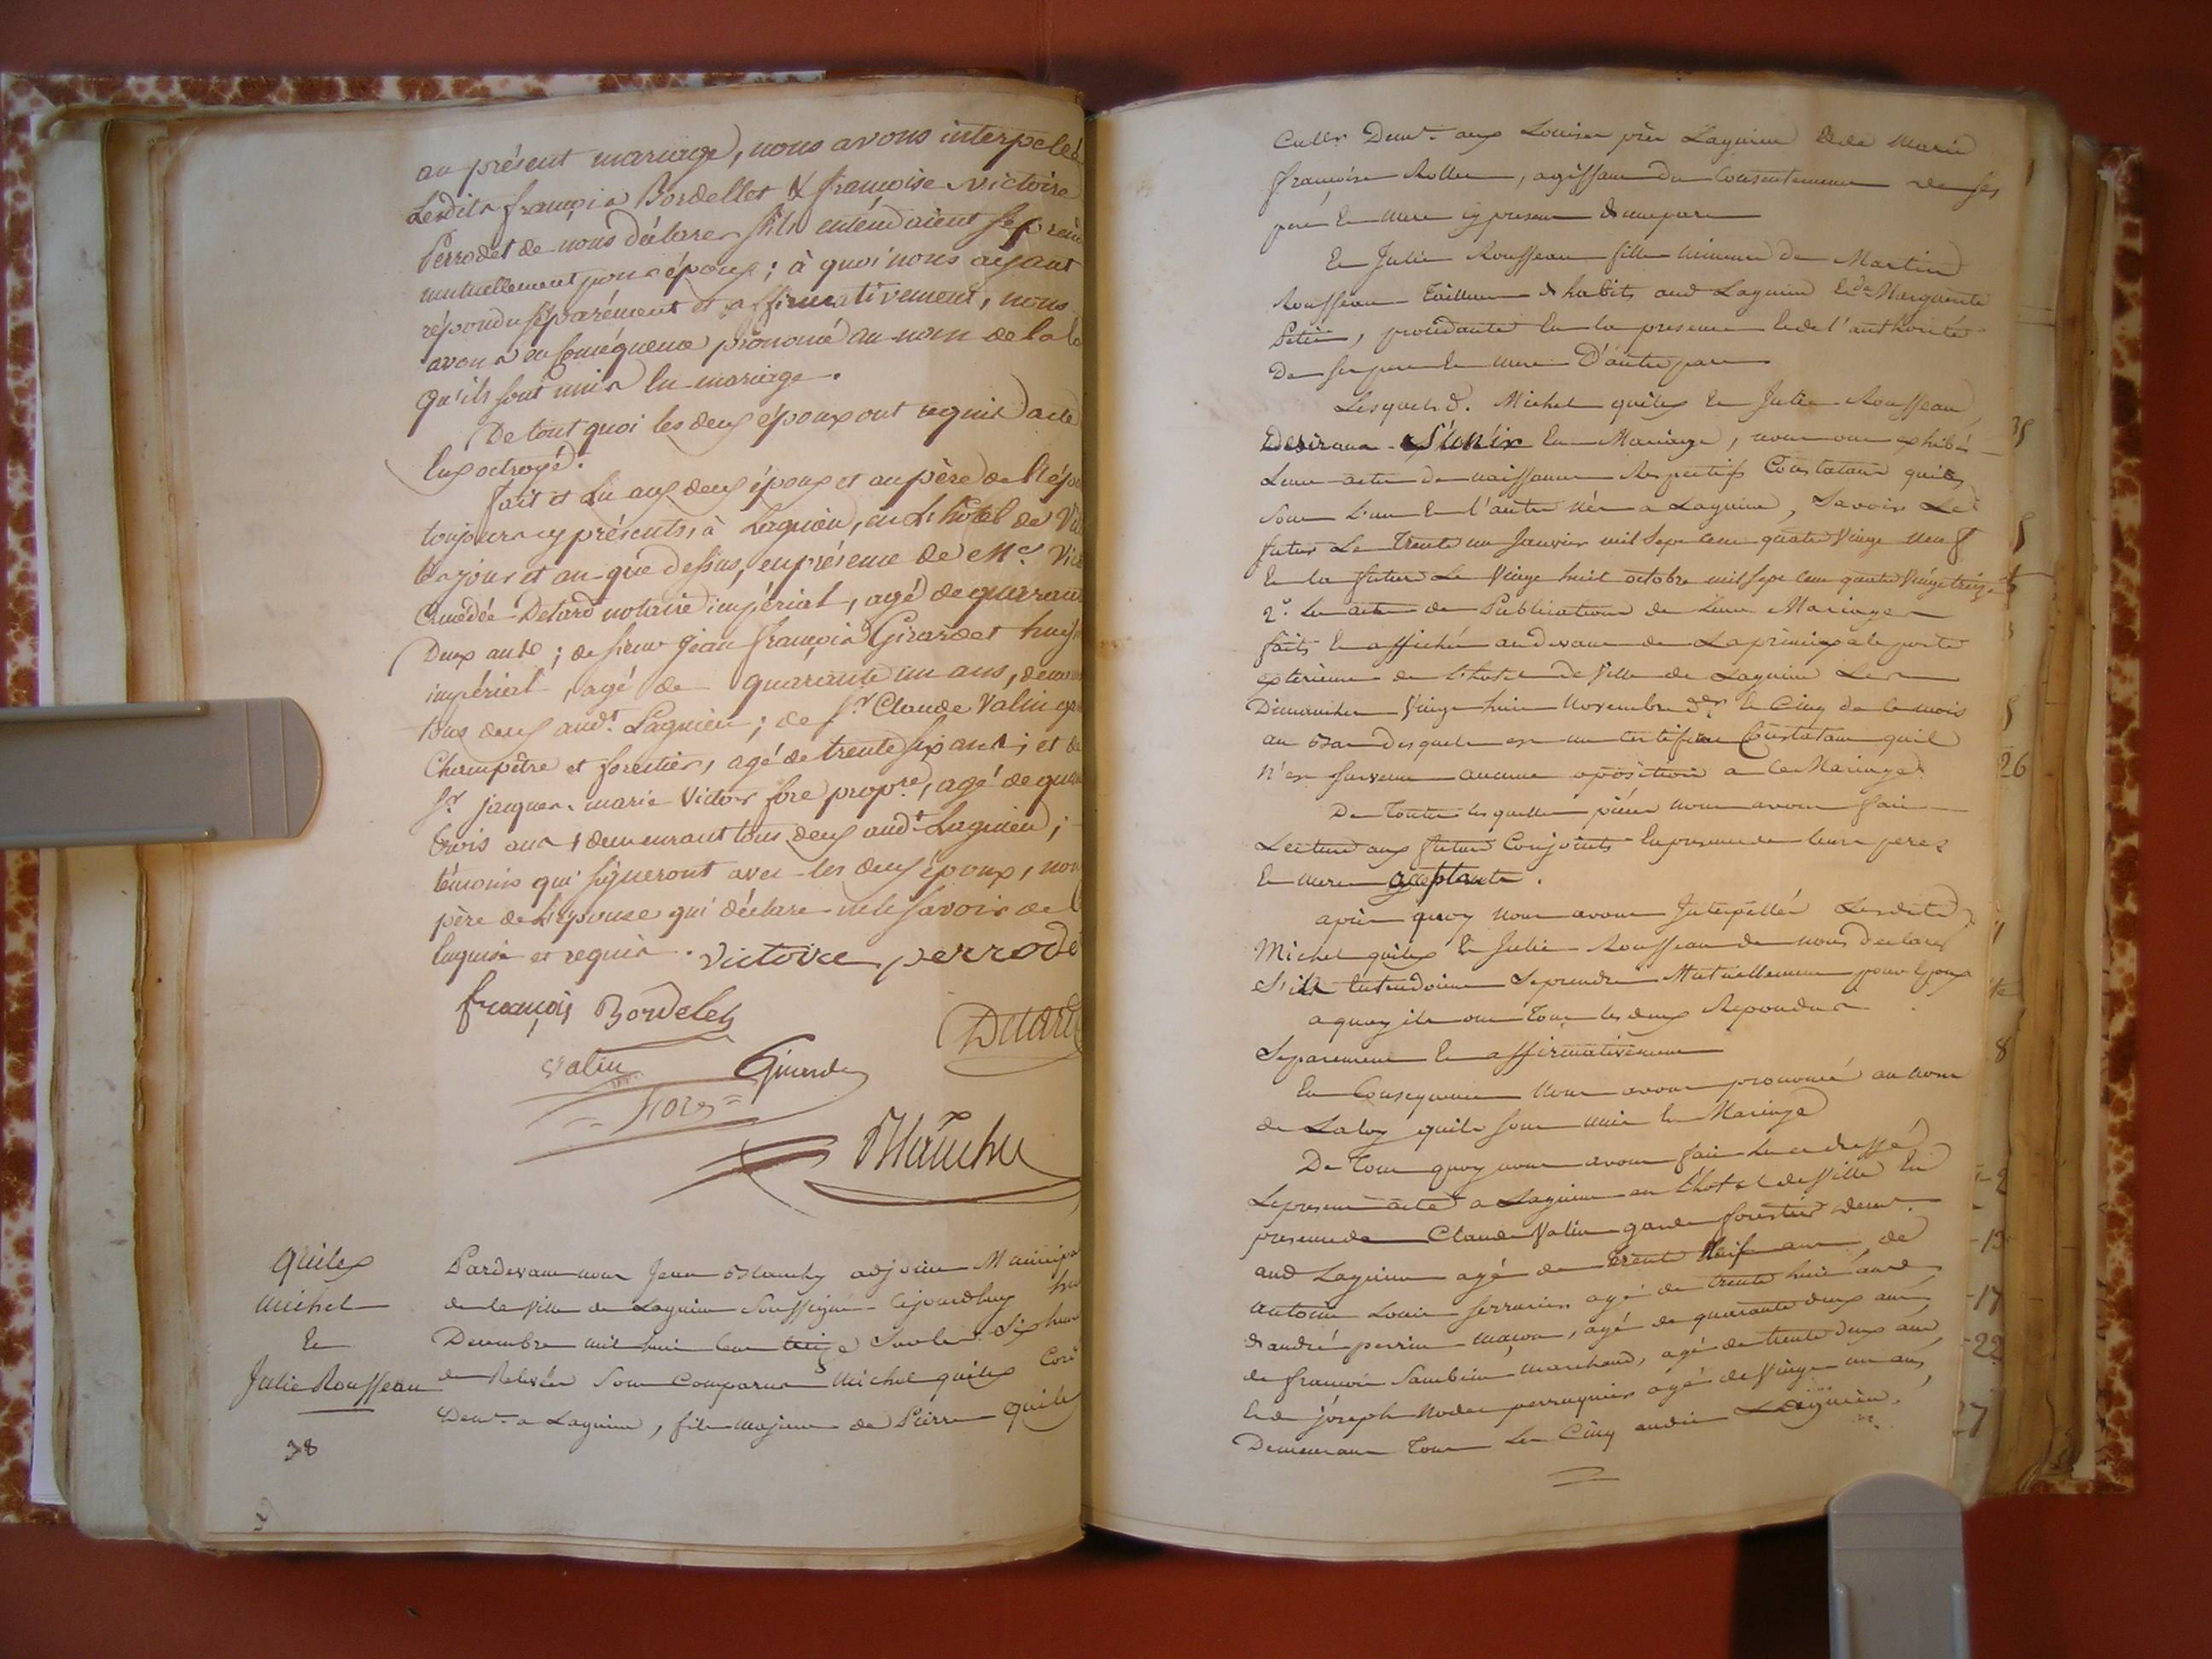 au présent mariage, nous avons interpelé
Lesdits françois Bordellet & françoise victoire
Perrodet de nous déclarer s'ils entendaient se prend
mutuellement pour époux ; à quoi nous ayant
répondu séparément et affirmativement, nous
avons en conséquence prononcé au nom de la lo
qu'ils sont unis en mariage.
De tout quoi les deux époux ont requis acte
Eux octroyé.
fait et lu aux deux époux et au père de l'épo
toujours cy présents, à Lagnieu, en L'hôtel de Vil
les jour et an que dessus, en présence de Me. Vict
Amédée Detard notaire impérial, agé de quarant
Deux ans ; de sieur jean françois Girardet huiss
impérial, agé de quarante un ans, demeur
tous deux audt. Lagnieu ; de Sr. Claude Valin ga
Champêtre et forestier, agé de trente six ans ; et de
Sr. jacques marie Victor fore propre, agé de quar
trois ans demeurant tous deux audt Lagnieu ;
témoins qui signeront avec les deux époux, non
père de L'epouse qui déclare ne le savoir de
Enquis et requis. Victoire perrode
françois Bordelet
Detard
Valin Girarde
fore
Blanchy
quilex
michel
Et
Julie Rousseau
38
Pardevant nous Jean Blanchy adjoint Municipal
de la Ville de Lagnieu Soussigné Cejourdhuy hui
Decembre mil huit Cent treize Sur les Six heure
de Relevée Sont Comparus Michel quilex Cor
Demt. a Lagnieu, fils majeur de Pierre quile
Cultr Demt. aux Louises près Lagnieu & de Marie
françoise Rollet, agissant du Consentement de ses
pere Et mere cy present d'une part
Et Julie Rousseau fille mineure de Martin
Rousseau Tailleur d'habits aud Lagnieu Et de Marguerite
Petit, procedante En la presence Et de l'authorité
De ses pere Et mere D'autre part
Lesquels d. Michel quilex Et Julie Rousseau
Desirans S'unir En Mariage, nous ont exhibés
Leurs actes de naissance Respectifs Constatant quils
Sont L'un Et l'autre nés a Lagnieu, Savoir Le
futur Le Trente un Janvier mil Sept Cent quatre Vingt neuf
Et la future Le Vingt huit octobre mil Sept Cent quatre Vingt treize
2º. Les actes de Publications de Leur Mariage
faits Et affichés audevant de La principale porte
exterieure de L'hotel de Ville de Lagnieu Les
Dimanches Vingt huit Novembre der. Et Cinq de Ce mois
au Bas desquels est un Certificat Constatant quil
n'est survenu aucune oposition a Ce Mariage.
De Toutes lesquelles pièces nous avons fait
Lecture aux futurs Conjoints En presence de leurs peres
Et meres
après quoy nous avons Interpellés Lesdits
Michel quilex Et Julie Rousseau de nous declarer
S'ils Entendoient Se prendre Mutuellement pour Epoux
a quoy ils ont Tous les deux Repondus
Separement Et affirmativement
En Consequence Nous avons prononcé au nom
de La loy quils sont unis En Mariage
De Tout quoy nous avons fait Lu et dressé
Le present acte a Lagnieu en L'hotel de Ville En
presence de Claude Valin garde forestier demt.
aud Lagnieu agé de Trente Neuf ans, de
antoine Louis serrurier agé de trente huit ans
d'andré perrin maçon, agé de quarante deux ans
de françois Sambin marchand, agé de trente deux ans
Et de joseph Nodet perruquier agé de Vingt un ans,
Demeurans Tous Les Cinq audit Lagnieu.
26
8
13
17
22